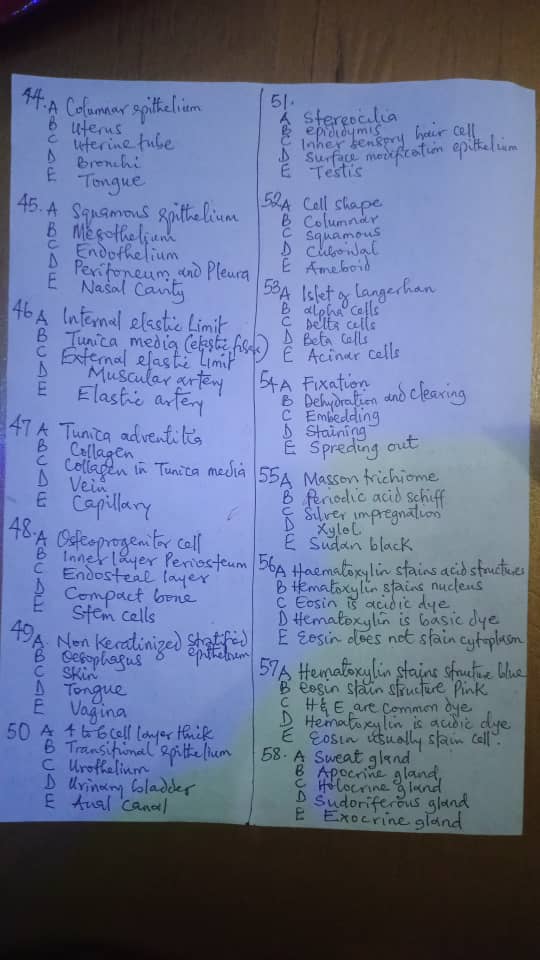 44. A Columnar epithelium
B Uterus
C Uterine tube
D Bronchi
E Tongue
45. A Squamous epithelium
B Mesothelium
C Endothelium
D Peritoneum and Pleura
E Nasal Cavity
46 A Internal elastic Limit
B Tunica media (elastic fiber)
C External elastic Limit
D Muscular artery
E Elastic artery
47 A Tunica adventitia
B Collagen
C Collagen in Tunica media
D Vein
E Capillary
48. A Osteoprogenitor cell
B Inner layer Periosteum
C Endosteal layer
D Compact bone
E Stem cells
49 A. Non Keratinized stratified epithelium
B Oesophagus
C Skin
D Tongue
E Vagina
50 A 4 to 6 cell layer thick
B Transitional epithelium
C Urothelium
D Urinary bladder
E Anal Canal
51.
A Stereocilia
B epididymis
C Inner sensory hair cell
D Surface modification epithelium
E Testis
52 A Cell shape
B Columnar
C Squamous
D Cuboidal
E Ameboid
53 A Islet of Langerhan
B alpha cells
C Delta cells
D Beta cells
E Acinar cells
54 A Fixation
B Dehydration and clearing
C Embedding
D Staining
E Spreding out
55 A Masson trichiome
B Periodic acid schiff
C Silver impregnation
D Xylol
E Sudan black
56 A Haematoxylin stains acid structures
B Hematoxylin stains nucleus
C Eosin is acidic dye
D Hematoxylin is basic dye
E Eosin does not stain cytoplasm
57 A Hematoxylin stains structure blue
B eosin stain structure Pink
C H&E are common dye
D Hematoxylin is acidic dye
E Eosin usually stain cell.
58. A Sweat gland
B Apocrine gland
C Holocrine gland
D Sudoriferous gland
E Exocrine gland